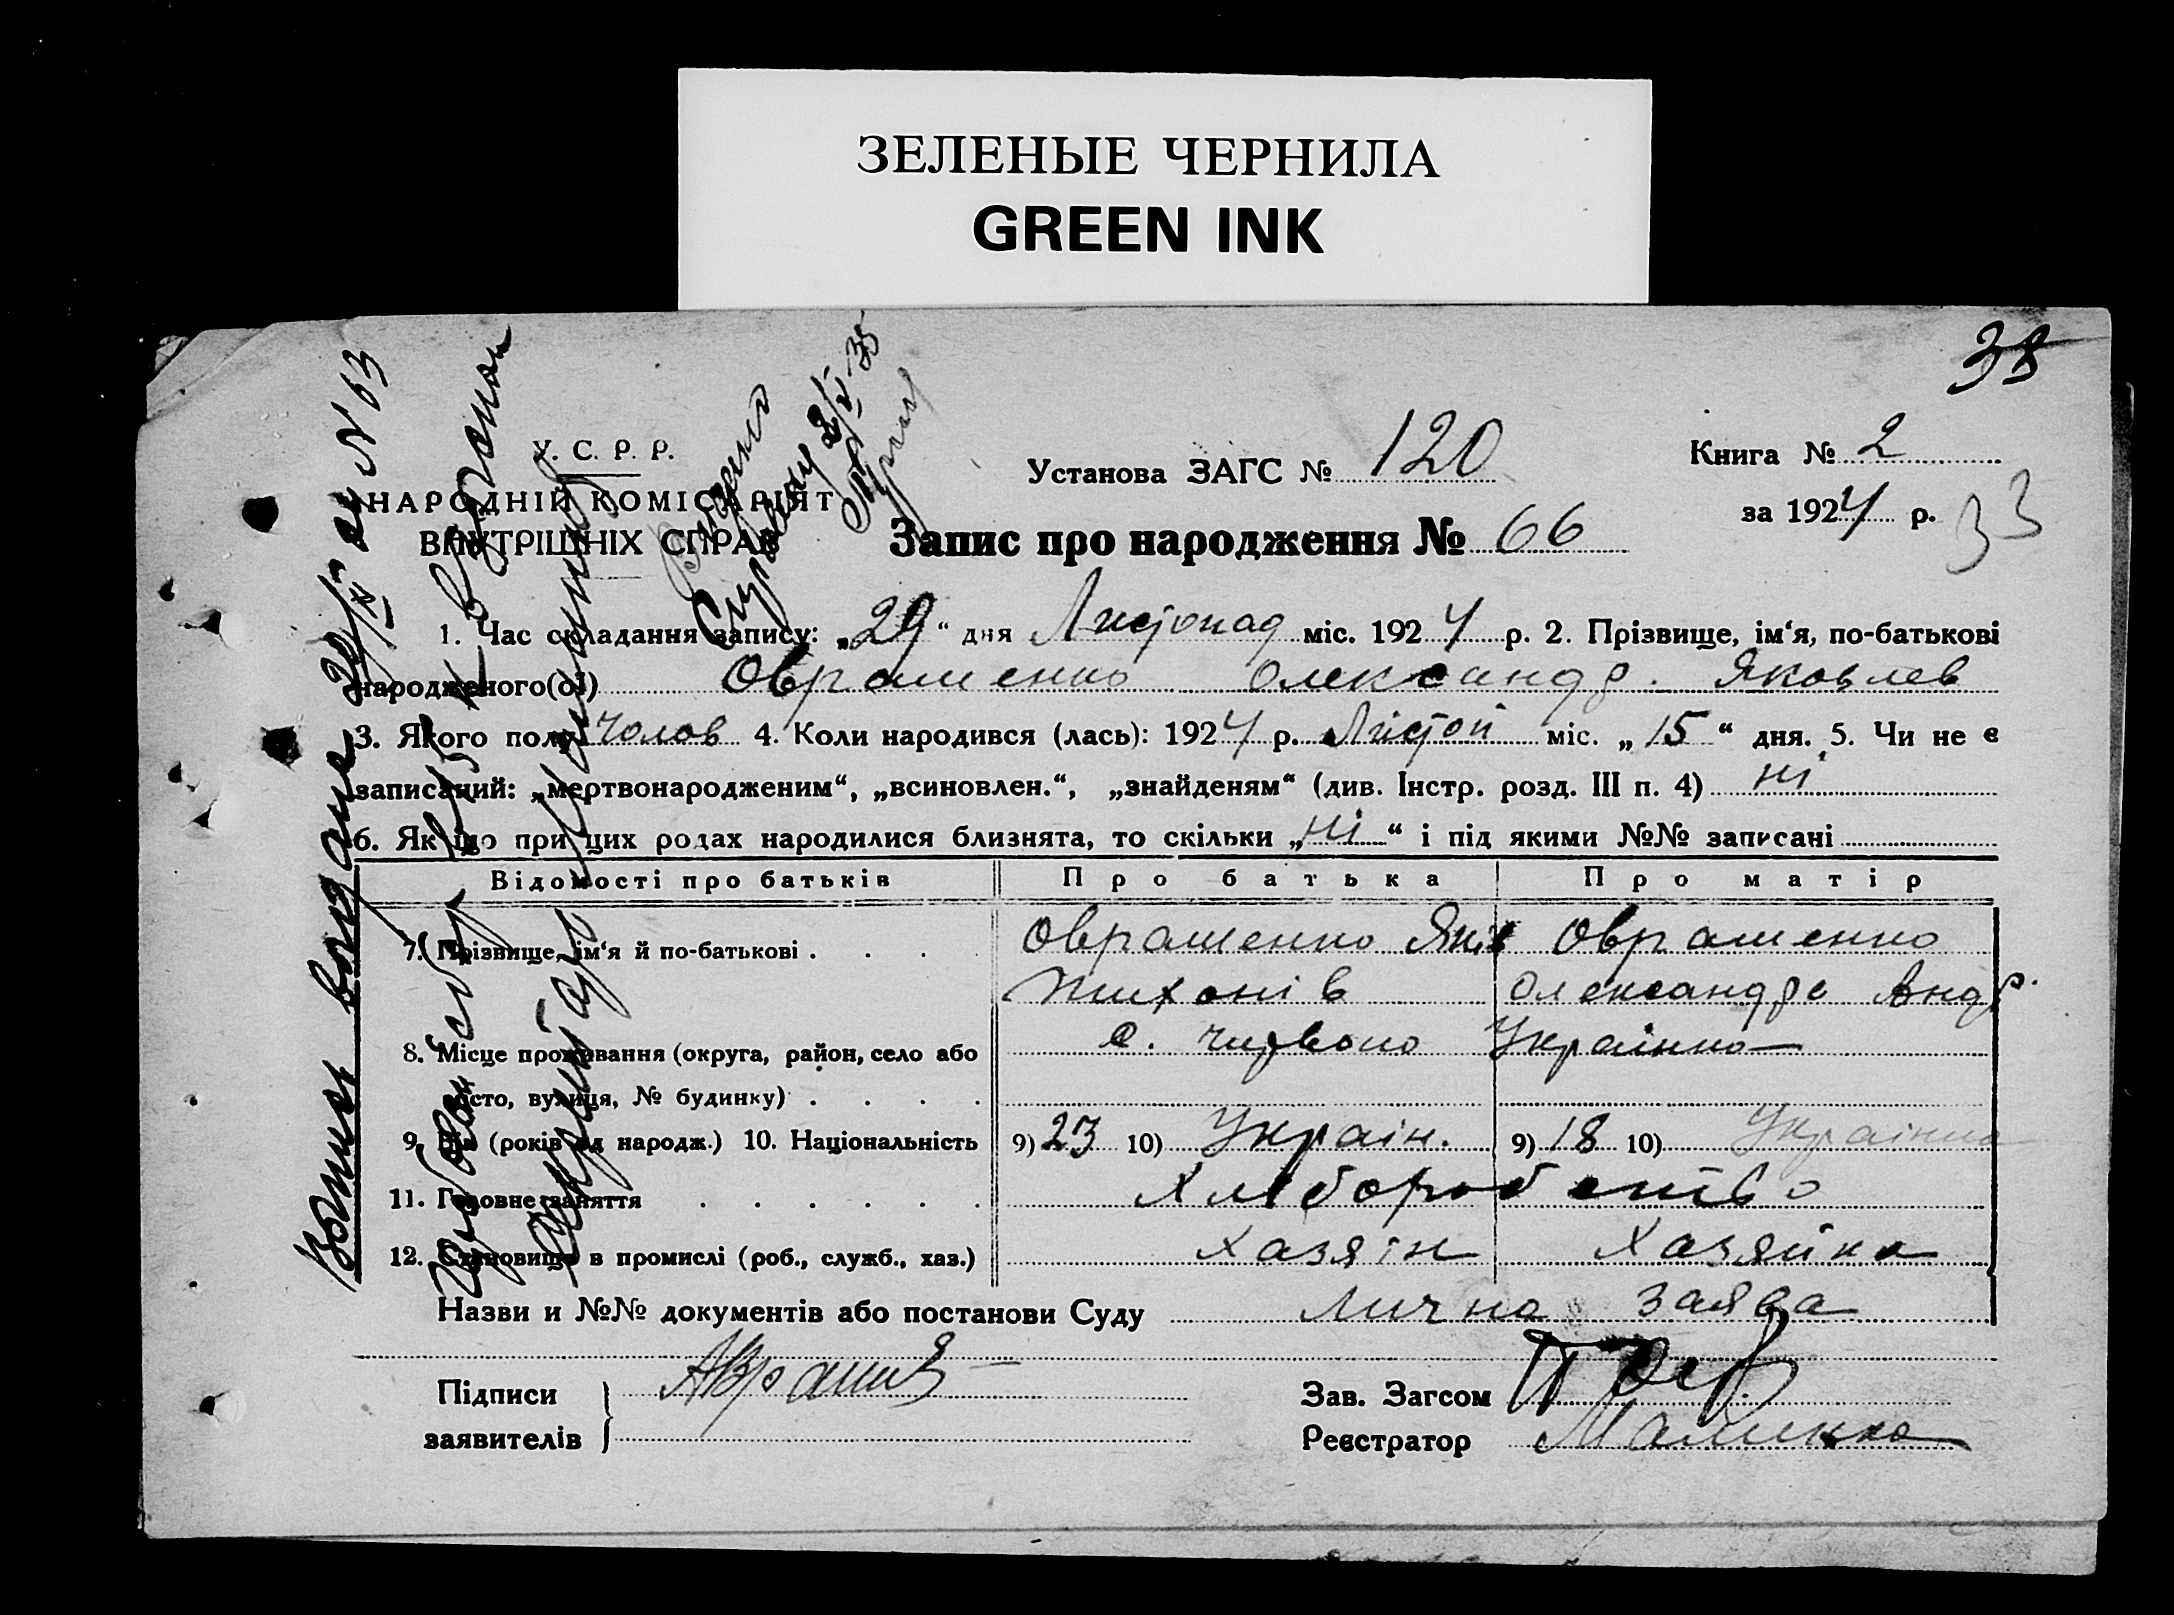 ЗЕЛЕНЫЕ ЧЕРНИЛА
GREEN INK
38
У. С. Р. Р.
НАРОДНІЙ КОМІСАРІЯТ
ВНУТРІШНІХ СПРАВ
Установа ЗАГС № 120
Книга № 2
за 1924 р.
33
Запис про народження № 66
1. Час складання запису: „29“ дня Листопад міс. 1924 р. 2. Прізвище, ім‘я, по-батькові
народженого(ої) Оврашенко Олександр. Яковлев
3. Якого полу Чолов 4. Коли народився (лась): 1924 р. Листоп міс. „15“ дня. 5. Чи не є
записаний: „мертвонародженим“, „всиновлен.“, „знайденям“ (див. Інстр. розд. III п. 4) ні
6. Якщо при цих родах народилися близнята, то скільки „ні“ і під якими №№ записані
Відомості про батьків Про батька Про матір
7. Прізвище, ім‘я й по-батькові . . . . Оврашенко Яків Оврашенко
Тихонів Олександра Андр.
8. Місце проживання (округа, район, село або с. Червоно Українка
місто, вулиця, № будинку) . . . .
9. Вік (років од народж.) 10. Національність 9) 23 10) Україн. 9) 18 10) Українка
11. Головне заняття . . . . . . Хліборобство
12. Становище в промислі (роб., служб., хаз.) Хазяїн Хазяйка
Назви и №№ документів або постанови Суду Лична заява
Підписи
заявителів
Зав. Загсом
Реєстратор Малинка
Копия выдана № 63
Справку